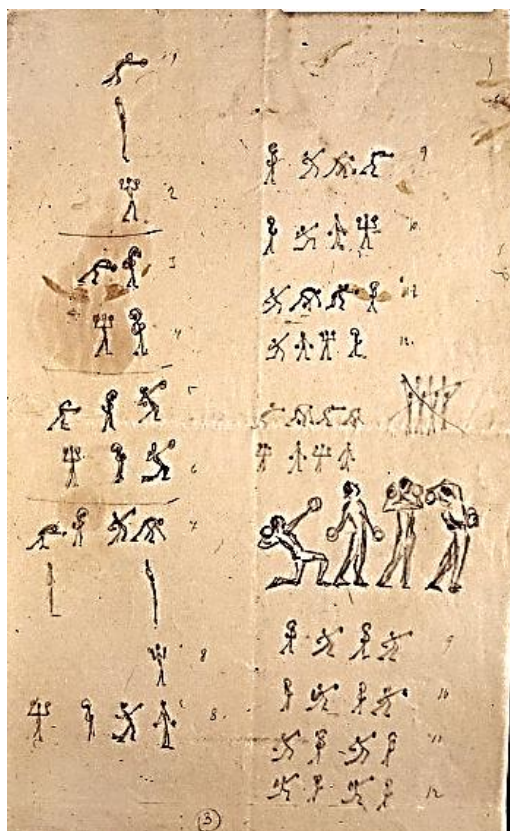 1
2
3
4
5
6
7
8
8.
9
10.
12.
9
10
11
12
3